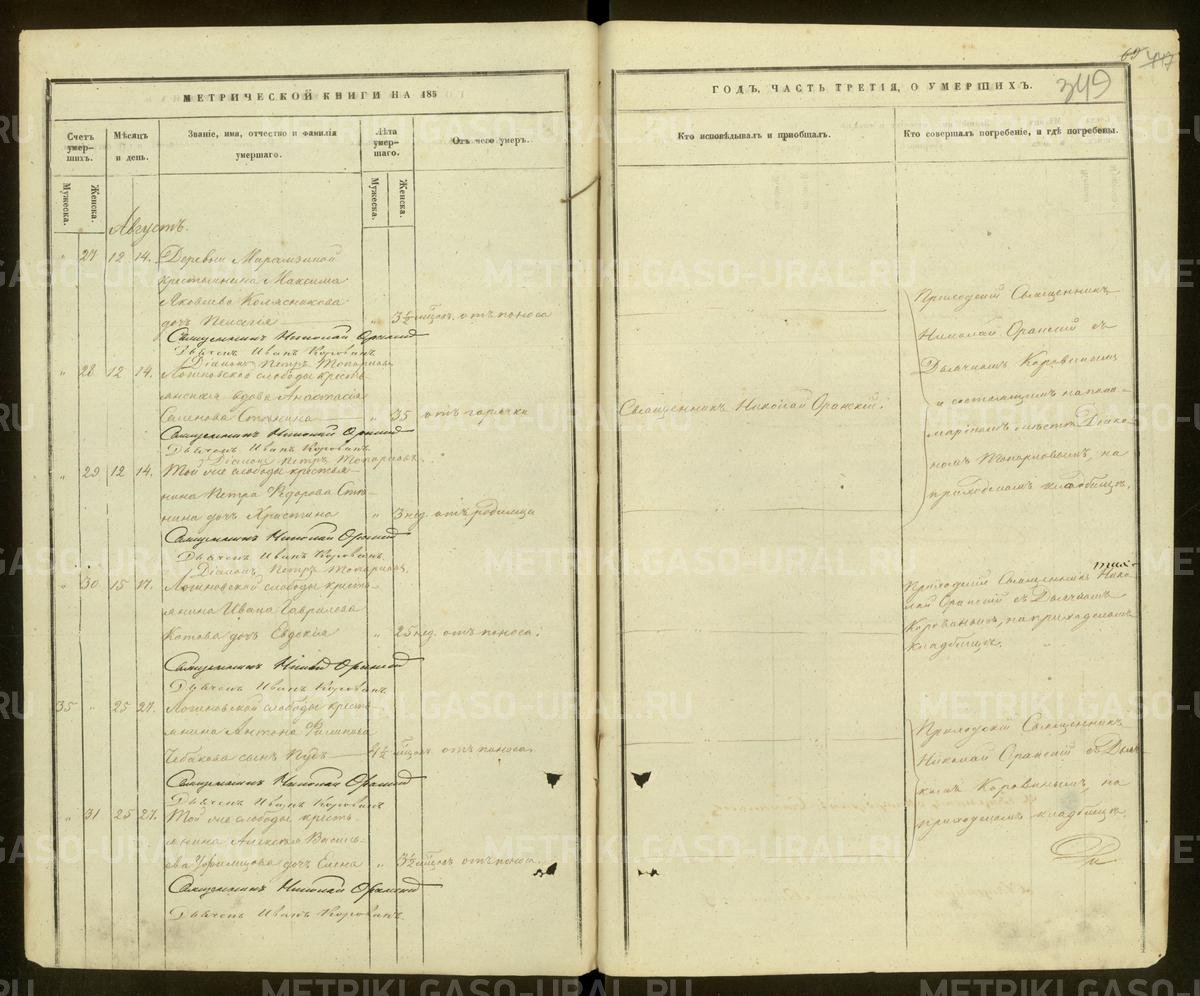 МЕТРИЧЕСКОЙ КНИГИ НА 185
Счетъ умер-шихъ.
Мужеска.
Женска.
Мѣсяцъ и день.
Званіе, имя, отчество и фамилія умершаго.
Лѣта умер-шаго.
Мужеска.
Женска.
Отъ чего умеръ.
Августъ.
„ 27 12 14. Деревни Марамзиной
крестьянина Максима
Яковлева Колясникова
дочь Пелагія „ 3½ мѣсяц. отъ поноса
Священникъ Николай Оранскій
Дьячекъ Иванъ Коровинъ
Діаконъ Петръ Топорковъ
„ 28 12 14. Логиновской слободы кресть-
янская вдова Анастасія
Семенова „ 35 отъ горячки
Священникъ Николай Оранскій
Дьячекъ Иванъ Коровинъ
Діаконъ Петръ Топорковъ.
„ 29 12 14. Той же слободы крестья-
нина Петра Ѳдорова
нина дочь Христина „ 3 нед. отъ родимца
Священникъ Николай Оранскій
Дьячекъ Иванъ Коровинъ
Діаконъ Петръ Топорковъ.
„ 30 15 17. Логиновской слободы кресть-
янина Ивана Гаврилова
Котова дочь Евдокія „ 25 нед. отъ поноса.
Священникъ Николай Оранскій
Дьячекъ Иванъ Коровинъ
35 „ 25 27. Логиновской слободы кресть-
янина Антона Филипова
Чебакова сынъ 4½ мѣсяц. отъ поноса.
Священникъ Николай Оранскій
Дьячекъ Иванъ Коровинъ
„ 31 25 27. Той же слободы кресть-
янина Алексѣя Василь-
ева Уфимцова дочь Елена „ 3½ мѣсяц. отъ поноса.
Священникъ Николай Оранскій
Дьячекъ Иванъ Коровинъ.
447
349
ГОДЪ, ЧАСТЬ ТРЕТІЯ, О УМЕРШИХЪ.
Кто исповѣдывалъ и пріобщалъ.
Кто совершалъ погребеніе, и гдѣ погребены.
Священникъ Николай Оранскій.
Приходскій Священникъ
Николай Оранскій съ
Дьячкомъ Коровинымъ
и состоящимъ на поно-
марскомъ мѣстѣ Діако-
номъ Топорковымъ, на
приходскомъ кладбищѣ.
Приходскій Священникъ Нико-
лай Оранскій съ Дьячкомъ
Коровинымъ, на приходскомъ
кладбищѣ.
Приходскій Священникъ
Николай Оранскій съ Дьяч-
комъ Коровинымъ, на
приходскомъ кладбищѣ.
METRIKI.GASO-URAL.RU